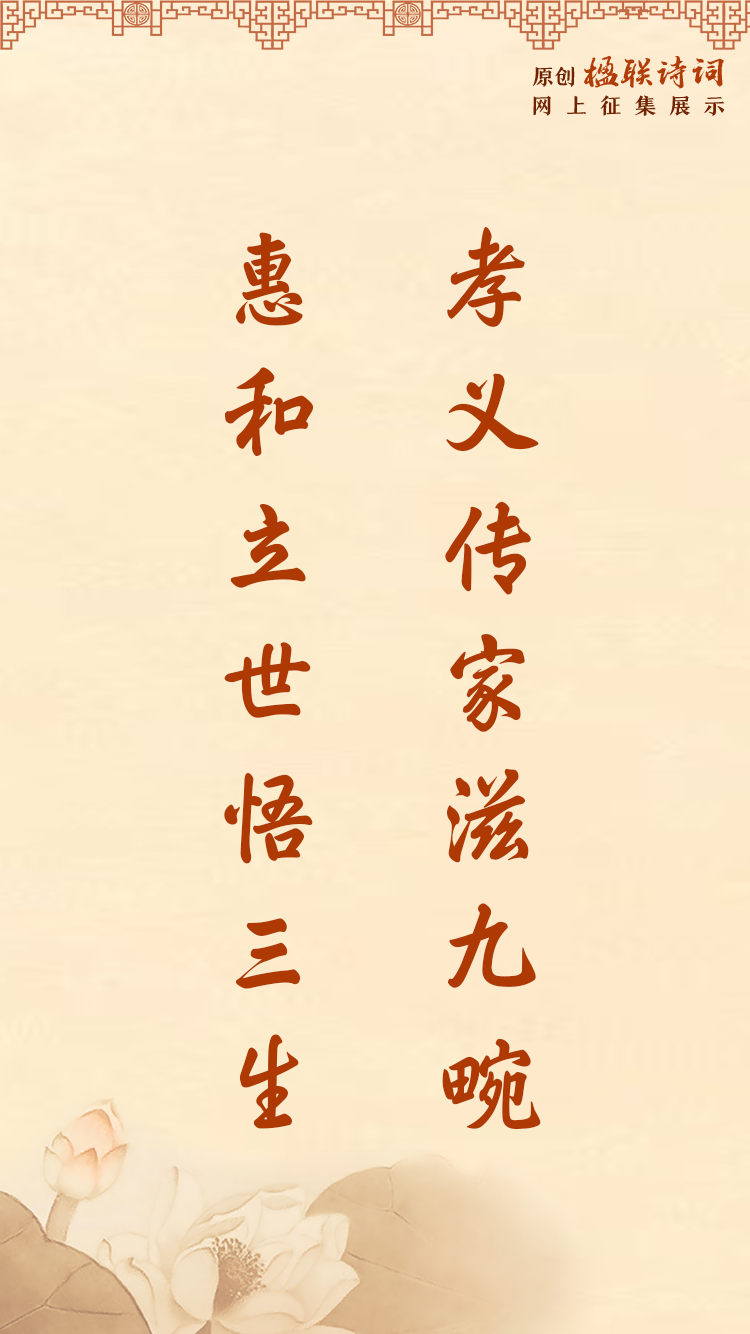 原创 楹联诗词
网上征集展示
孝义传家滋九畹
惠和立世悟三生